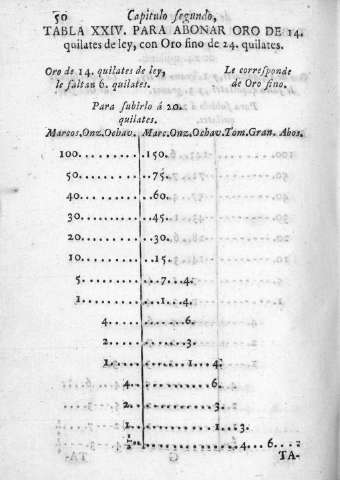 50 Capitulo segundo,
TABLA XXIV. PARA ABONAR ORO DE 14.
quilates de ley, con Oro fino de 24. quilates.
Oro de 14. quilates de ley, Le corresponde
le faltan 6. quilates. de Oro fino.
Para subirlo á 20.
quilates.
Marcos.Onz.Ochav. Marc.Onz.Ochav.Tom.Gran. Abos.
100.........150.
50.........75.
40.........60.
30.........45.
20.........30.
10.........15.
5.........7...4.
1.........1...4.
4.........6.
2.........3.
1.........1...4.
4.........6.
2.........3.
1.........1...3.
1/2.........4...6...
TA-